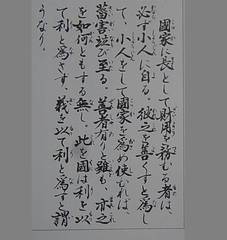 國家に長として財用を務むる者は、
必ず小人に自る。彼之を善くすと爲し
て、小人をして國家を爲め使むれば、
菑害並び至る。善者有りと雖も、亦之
を如何ともする無し。此を國は利を以
て利と爲さず、義を以て利と爲すと謂
うなり。